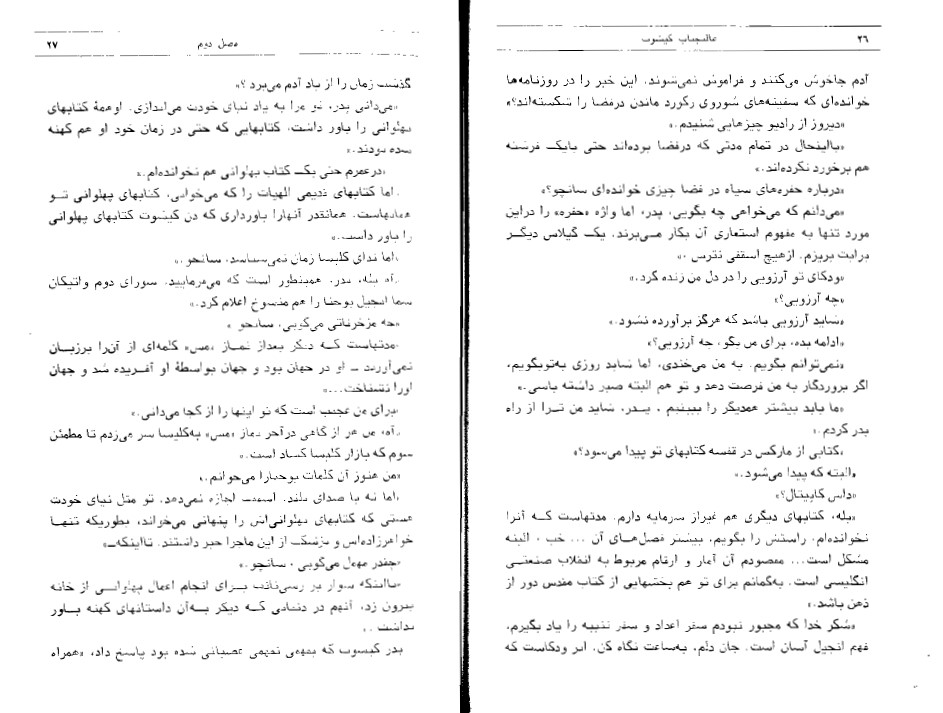 ۲۶
عالیجناب کیشوت
آدم چاخوش می‌کنند و فراموش نمی‌شوند. این خبر را در روزنامه‌ها
خوانده‌ای که سفینه‌های شوروی رکورد ماندن درفضا را شکسته‌اند؟»
«دیروز از رادیو چیزهایی شنیدم.»
«بااینحال در تمام مدتی که درفضا بوده‌اند حتی بایک فرشته
هم برخورد نکرده‌اند.»
«درباره حفره‌های سیاه در فضا چیزی خوانده‌ای سانچو؟»
«می‌دانم که می‌خواهی چه بگویی، پدر، اما واژه «حفره» را دراین
مورد تنها به مفهوم استعاری آن بکار می‌برند. یک گیلاس دیگر
برایت بریزم. ازهیچ اسقفی نترس.»
«ودکای تو آرزویی را در دل من زنده کرد.»
«چه آرزویی؟»
«شاید آرزویی باشد که هرگز برآورده نشود.»
«ادامه بده، برای من بگو، چه آرزویی؟»
«نمی‌توانم بگویم. به من می‌خندی، اما شاید روزی به‌توبگویم،
اگر پروردگار به من فرصت دهد و تو هم البته صبر داشته باشی.»
«ما باید بیشتر همدیگر را ببینیم، پدر، شاید من ترا از راه
بدر کردم.»
«کتابی از مارکس در قفسه کتابهای تو پیدا می‌شود؟»
«البته که پیدا می‌شود.»
«داس کاپیتال؟»
«بله، کتابهای دیگری هم غیراز سرمایه دارم. مدتهاست که آنرا
نخوانده‌ام، راستش را بگویم، بیشتر فصل‌های آن ... خب، البته
مشکل است... مقصودم آن آمار و ارقام مربوط به انقلاب صنعتی
انگلیسی است. به‌گمانم برای تو هم بخشهایی از کتاب مقدس دور از
ذهن باشد.»
«شکر خدا که مجبور نبودم سفر اعداد و سفر تثنیه را یاد بگیرم،
فهم انجیل آسان است. جان دلم، به‌ساعت نگاه کن. اثر ودکاست که
فصل دوم
۲۷
گذشت زمان را از یاد آدم می‌برد؟»
«می‌دانی پدر، تو مرا به یاد نیای خودت می‌اندازی. اوهمهٔ کتابهای
پهلوانی را باور داشت، کتابهایی که حتی در زمان خود او هم کهنه
شده بودند.»
«درعمرم حتی یک کتاب پهلوانی هم نخوانده‌ام.»
«اما کتابهای قدیمی الهیات را که می‌خوانی، کتابهای پهلوانی تو
همانهاست. همانقدر آنهارا باورداری که دن کیشوت کتابهای پهلوانی
را باور داشت.»
«اما ندای کلیسا زمان نمی‌شناسد، سانچو.»
«آه بله، پدر، همینطور است که می‌فرمایید. شورای دوم واتیکان
شما انجیل یوحنا را هم منسوخ اعلام کرد.»
«چه مزخرفاتی می‌گویی، سانچو.»
«مدتهاست که دیگر بعداز نماز «مس» کلمه‌ای از آن‌را برزبان
نمی‌آورید – او در جهان بود و جهان بواسطهٔ او آفریده شد و جهان
اورا نشناخت...»
«برای من عجیب است که تو اینها را از کجا می‌دانی.»
«آه، من هر از گاهی درآخر نماز «مس» به‌کلیسا سر می‌زدم تا مطمئن
شوم که بازار کلیسا کساد است.»
«من هنوز آن کلمات یوحنارا می‌خوانم.»
«اما نه با صدای بلند. اسقفت اجازه نمی‌دهد. تو مثل نیای خودت
هستی که کتابهای پهلوانی‌اش را پنهانی می‌خواند، بطوریکه تنها
خواهرزاده‌اش و پزشکش از این ماجرا خبر داشتند. تااینکه–»
«چقدر مهمل می‌گویی، سانچو.»
«تااینکه سوار بر رسی‌نانت برای انجام اعمال پهلوانی از خانه
بیرون زد، آنهم در دنیایی که دیگر به‌آن داستانهای کهنه باور
نداشت.»
پدر کیشوت که عصبانی شده بود پاسخ داد، «همراه